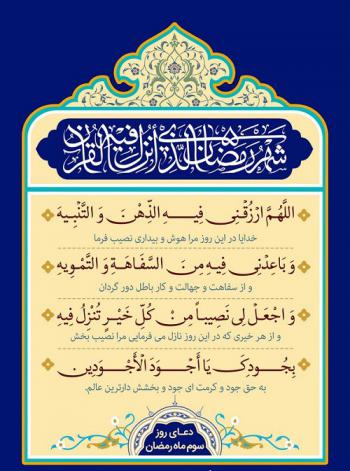 شَهْرُ رَمَضَانَ الَّذِي أُنْزِلَ فِيهِ الْقُرْآنُ
اللَّهُمَّ ارْزُقْنِي فِيهِ الذِّهْنَ وَ التَّنْبِيهَ
خدایا در این روز مرا هوش و بیداری نصیب فرما
وَ بَاعِدْنِي فِيهِ مِنَ السَّفَاهَةِ وَ التَّمْوِيهِ
و از سفاهت و جهالت و کار باطل دور گردان
وَ اجْعَلْ لِي نَصِيباً مِنْ كُلِّ خَيْرٍ تُنْزِلُ فِيهِ
و از هر خیری که در این روز نازل می فرمایی مرا نصیب بخش
بِجُودِكَ يَا أَجْوَدَ الْأَجْوَدِينَ
به حق جود و کرمت ای جود و بخشش دارترین عالم.
دعـای روز
سوم ماه رمضان